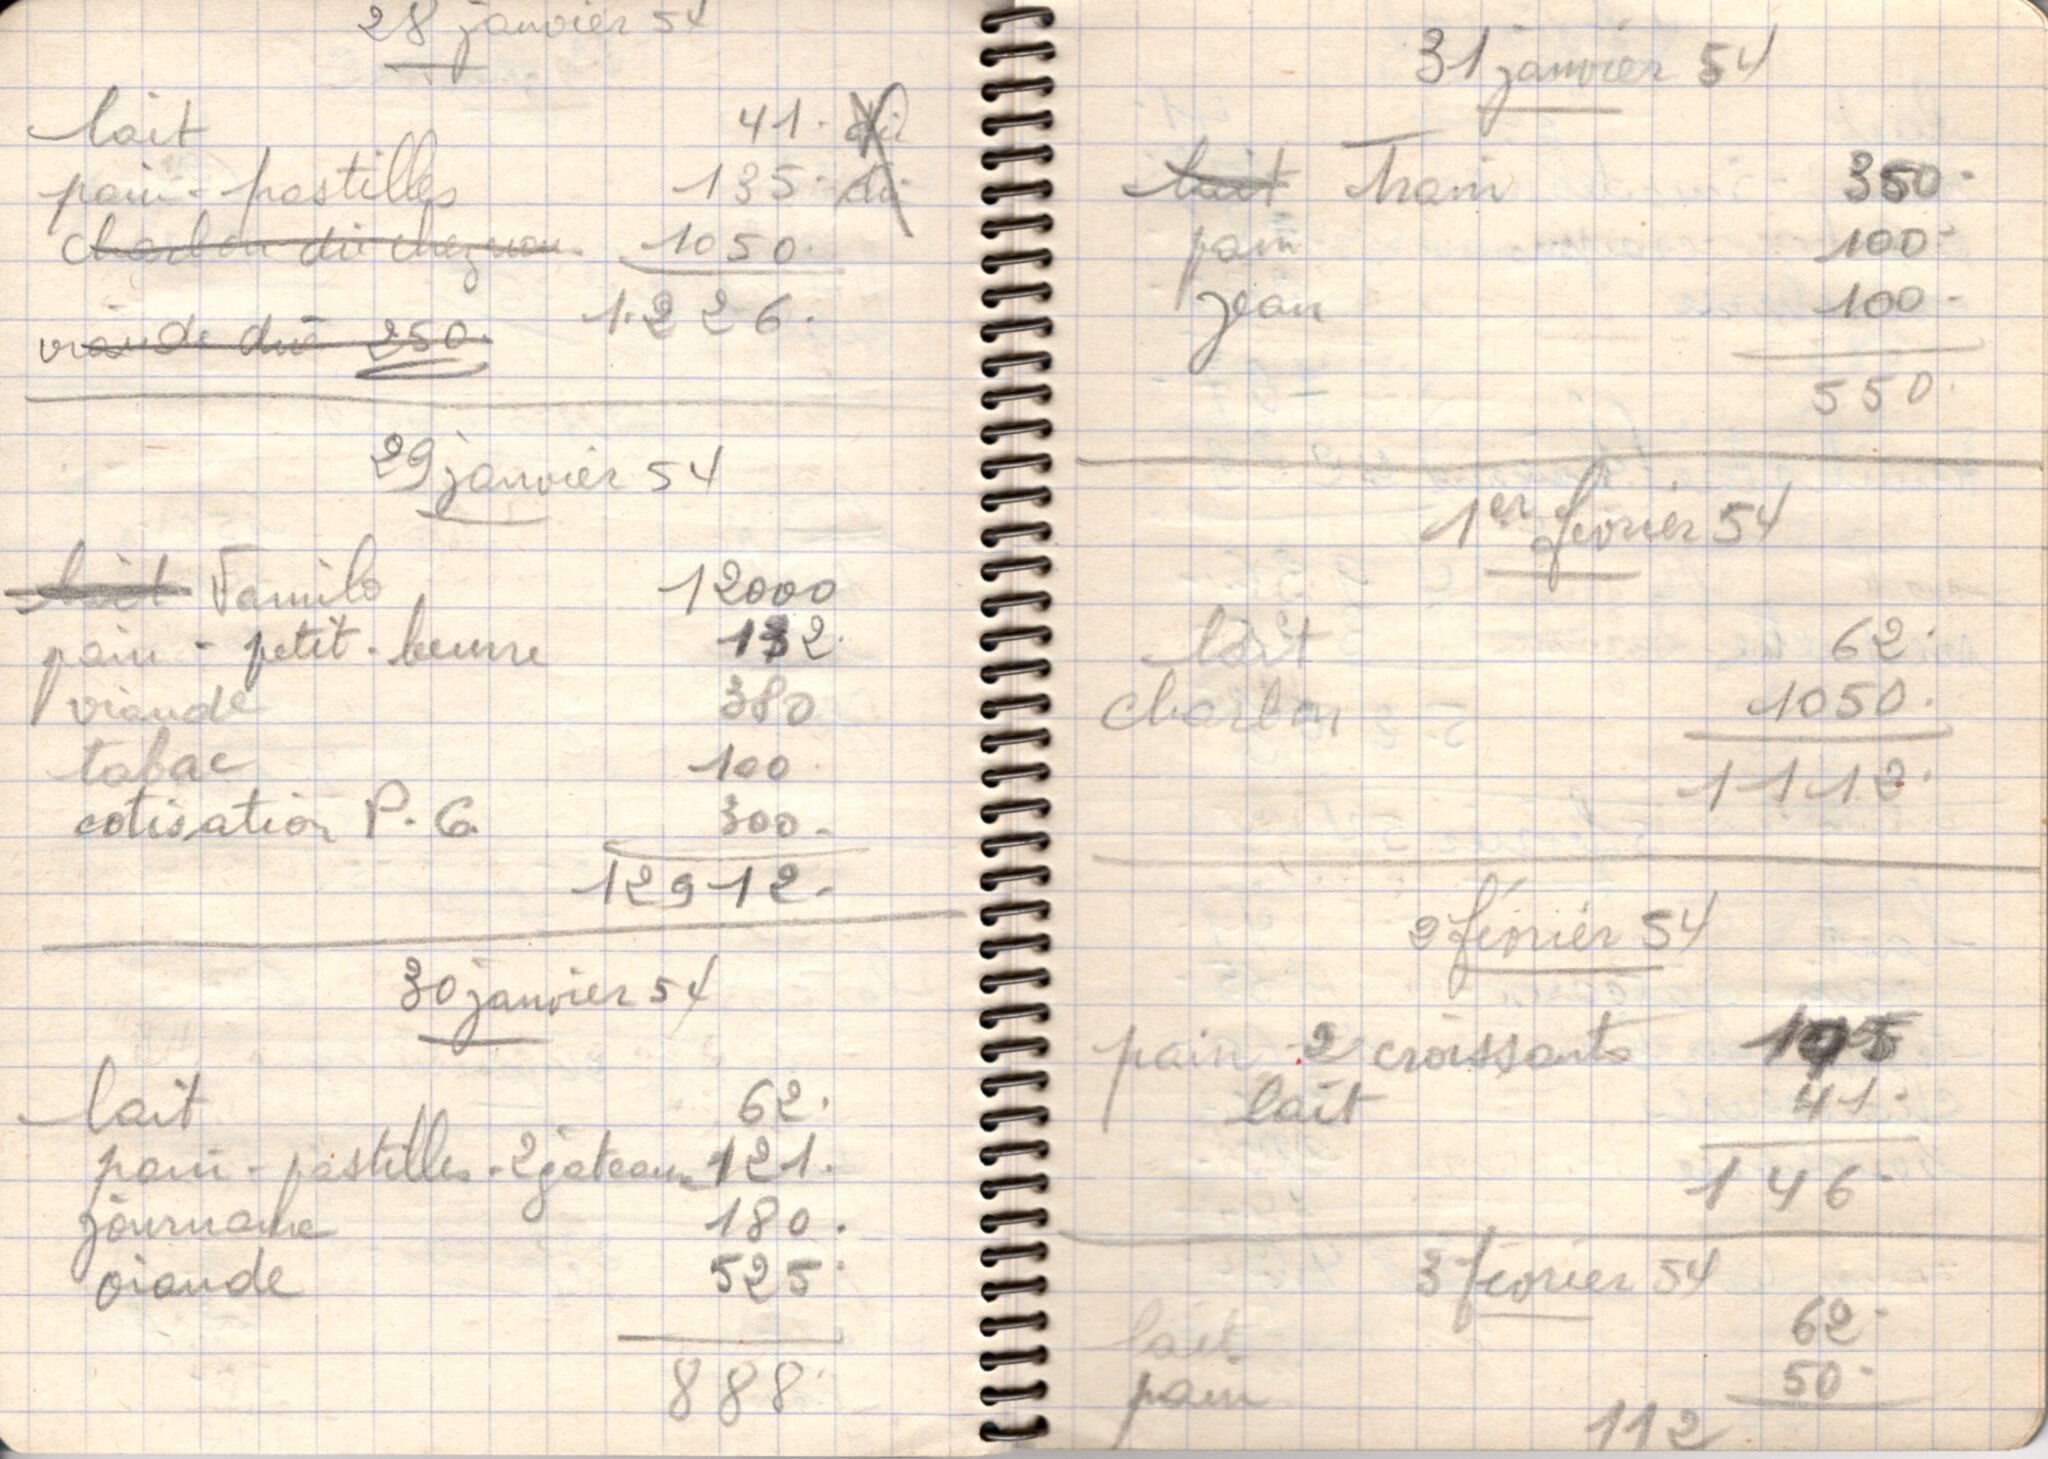 28 janvier 54
lait 41. dû
pain - pastilles 135. dû
charbon dû chez nou 1050.
1.226.
viande dûe 250.
29 janvier 54
lait Familo 12000
pain - petit-beurre 132.
viande 380
tabac 100.
cotisation P. G. 300.
12912.
30 janvier 54
lait 62.
pain - pastilles - 2 gateaux 121.
journaux 180.
viande 525.
888.
31 janvier 54
lait Train 350.
pain 100.
jean 100.
550.
1er février 54
lait 62.
charbon 1050.
1112.
2 février 54
pain - 2 croissants 105
lait 41.
146.
3 février 54
lait 62.
pain 50.
112